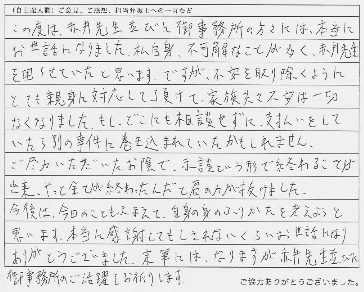 (自由記入欄)ご意見、ご感想、担当弁護士への一言など
この度は、赤井先生並びに御事務所の方々には、本当に
お世話になりました。私自身、不可解なことが多く、赤井先生
を困らせていたと思います。一方ですが、不安を取り除くように
とても親身に対応して頂けて、家族共々不安は一切
なくなりました。もし、どこにも相談せずに、支払いをして
いたら別の事件に巻き込まれていたかもしれません。
ご尽力いただいたお陰で、示談という形で終わることが
出来、やっと全てが終わったんだと肩の力が抜けました。
今後は、今回のことをふまえて、自身の身のふりかたを考えようと
思います。本当に感謝してもしきれないくらいお世話になり
ありがとうございました。末筆にはなりますが赤井先生並びに
御事務所のご活躍をお祈りします。
ご協力ありがとうございました。